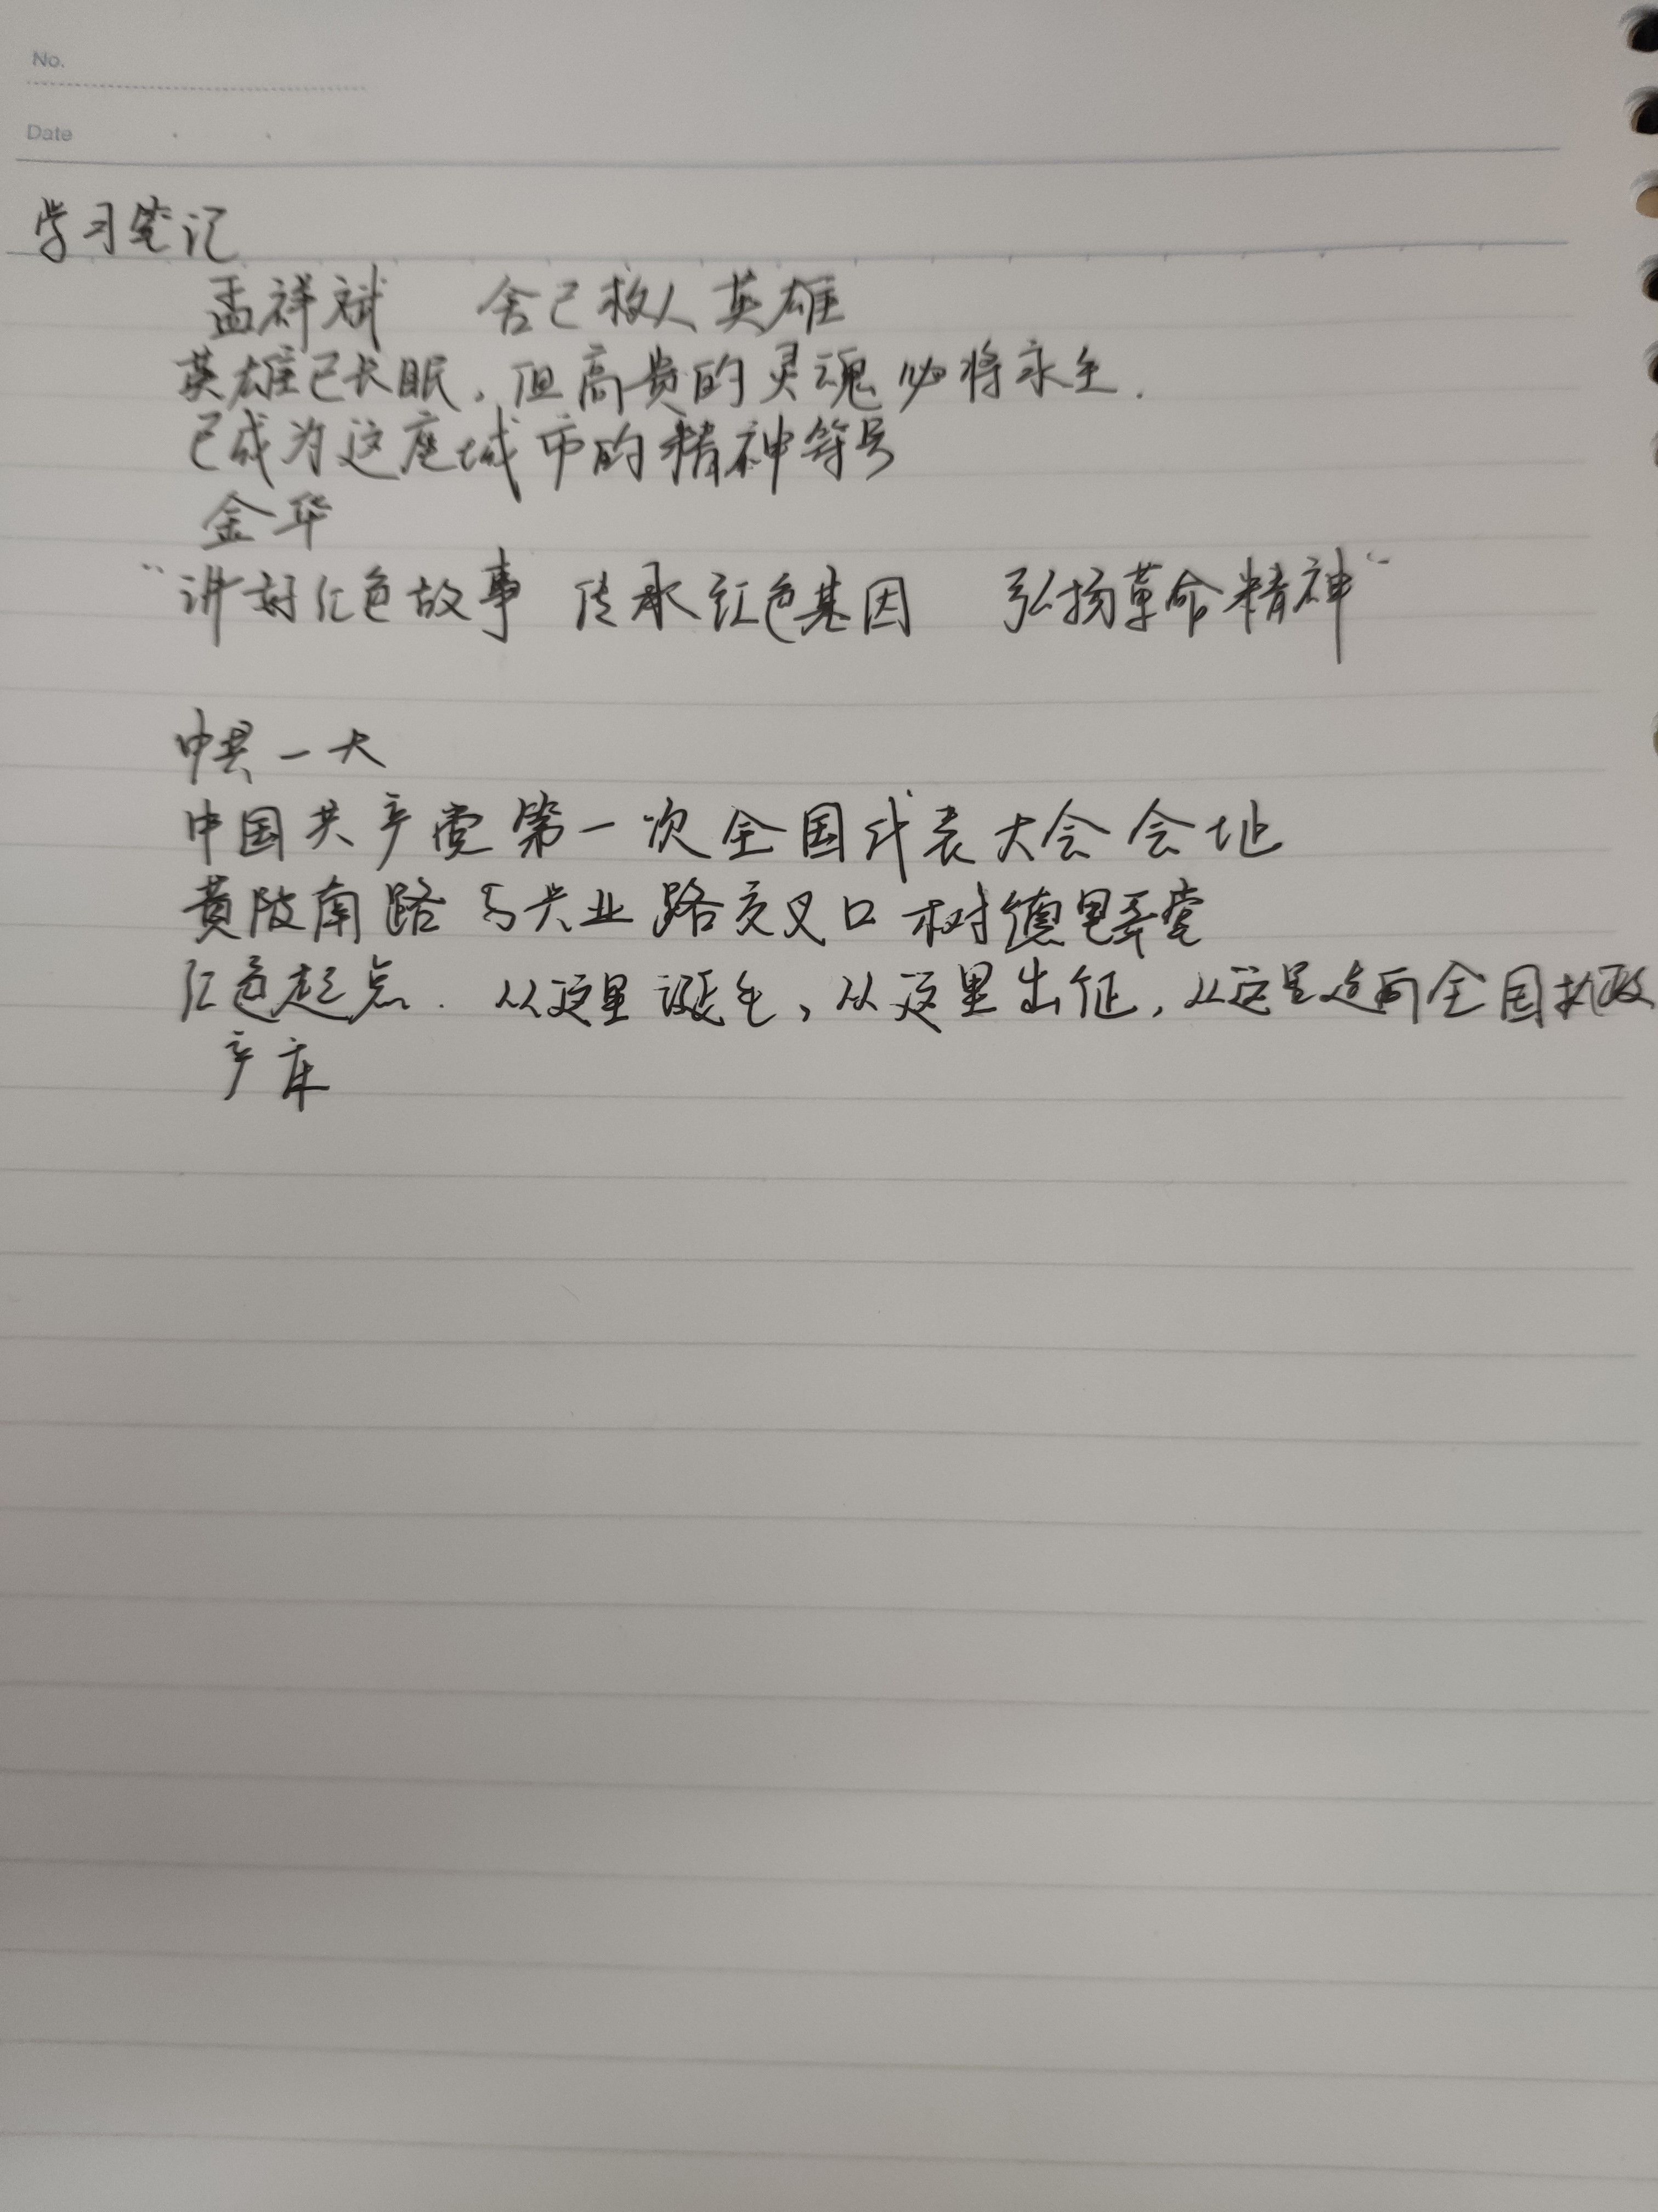 No.
Date
学习笔记
孟祥斌 舍己救人英雄
英雄已长眠，但高贵的灵魂必将永生.
已成为这座城市的精神符号
金华
“讲好红色故事 传承红色基因 弘扬革命精神”
中共一大
中国共产党第一次全国代表大会会址
黄陂南路与兴业路交叉口树德里弄堂
红色起点. 从这里诞生,从这里出征,从这里走向全国执政